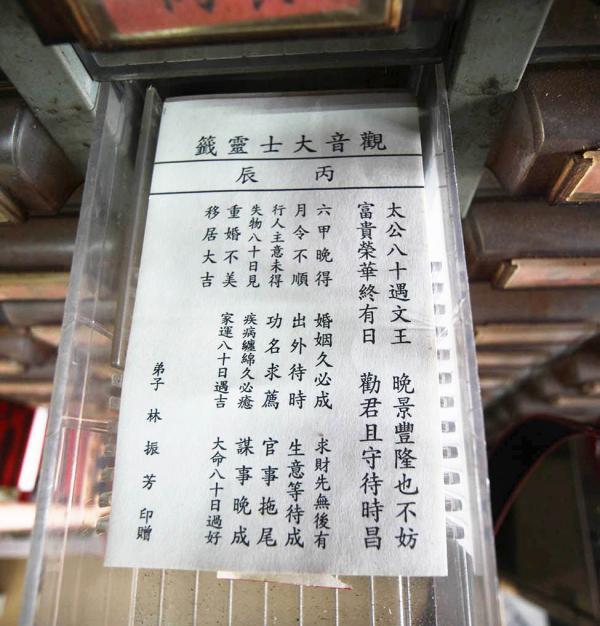 觀音大士靈籤
丙辰
太公八十遇文王 晚景豐隆也不妨
富貴榮華終有日 勸君且守待時昌
六甲晚得 婚姻久必成 求財先無後有
月令不順 出外待時 生意等待成
行人主意未得 功名求薦 官事拖尾
失物八十日見 疾病纏綿久必癒 謀事晚成
重婚不美 家運八十日遇吉 大命八十日過好
移居大吉
弟子 林振芳 印贈